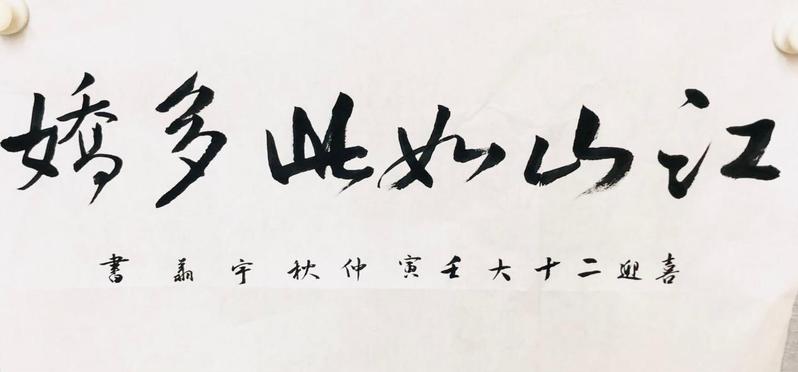 江山如此多嬌
喜迎二十大壬寅仲秋宇翦書